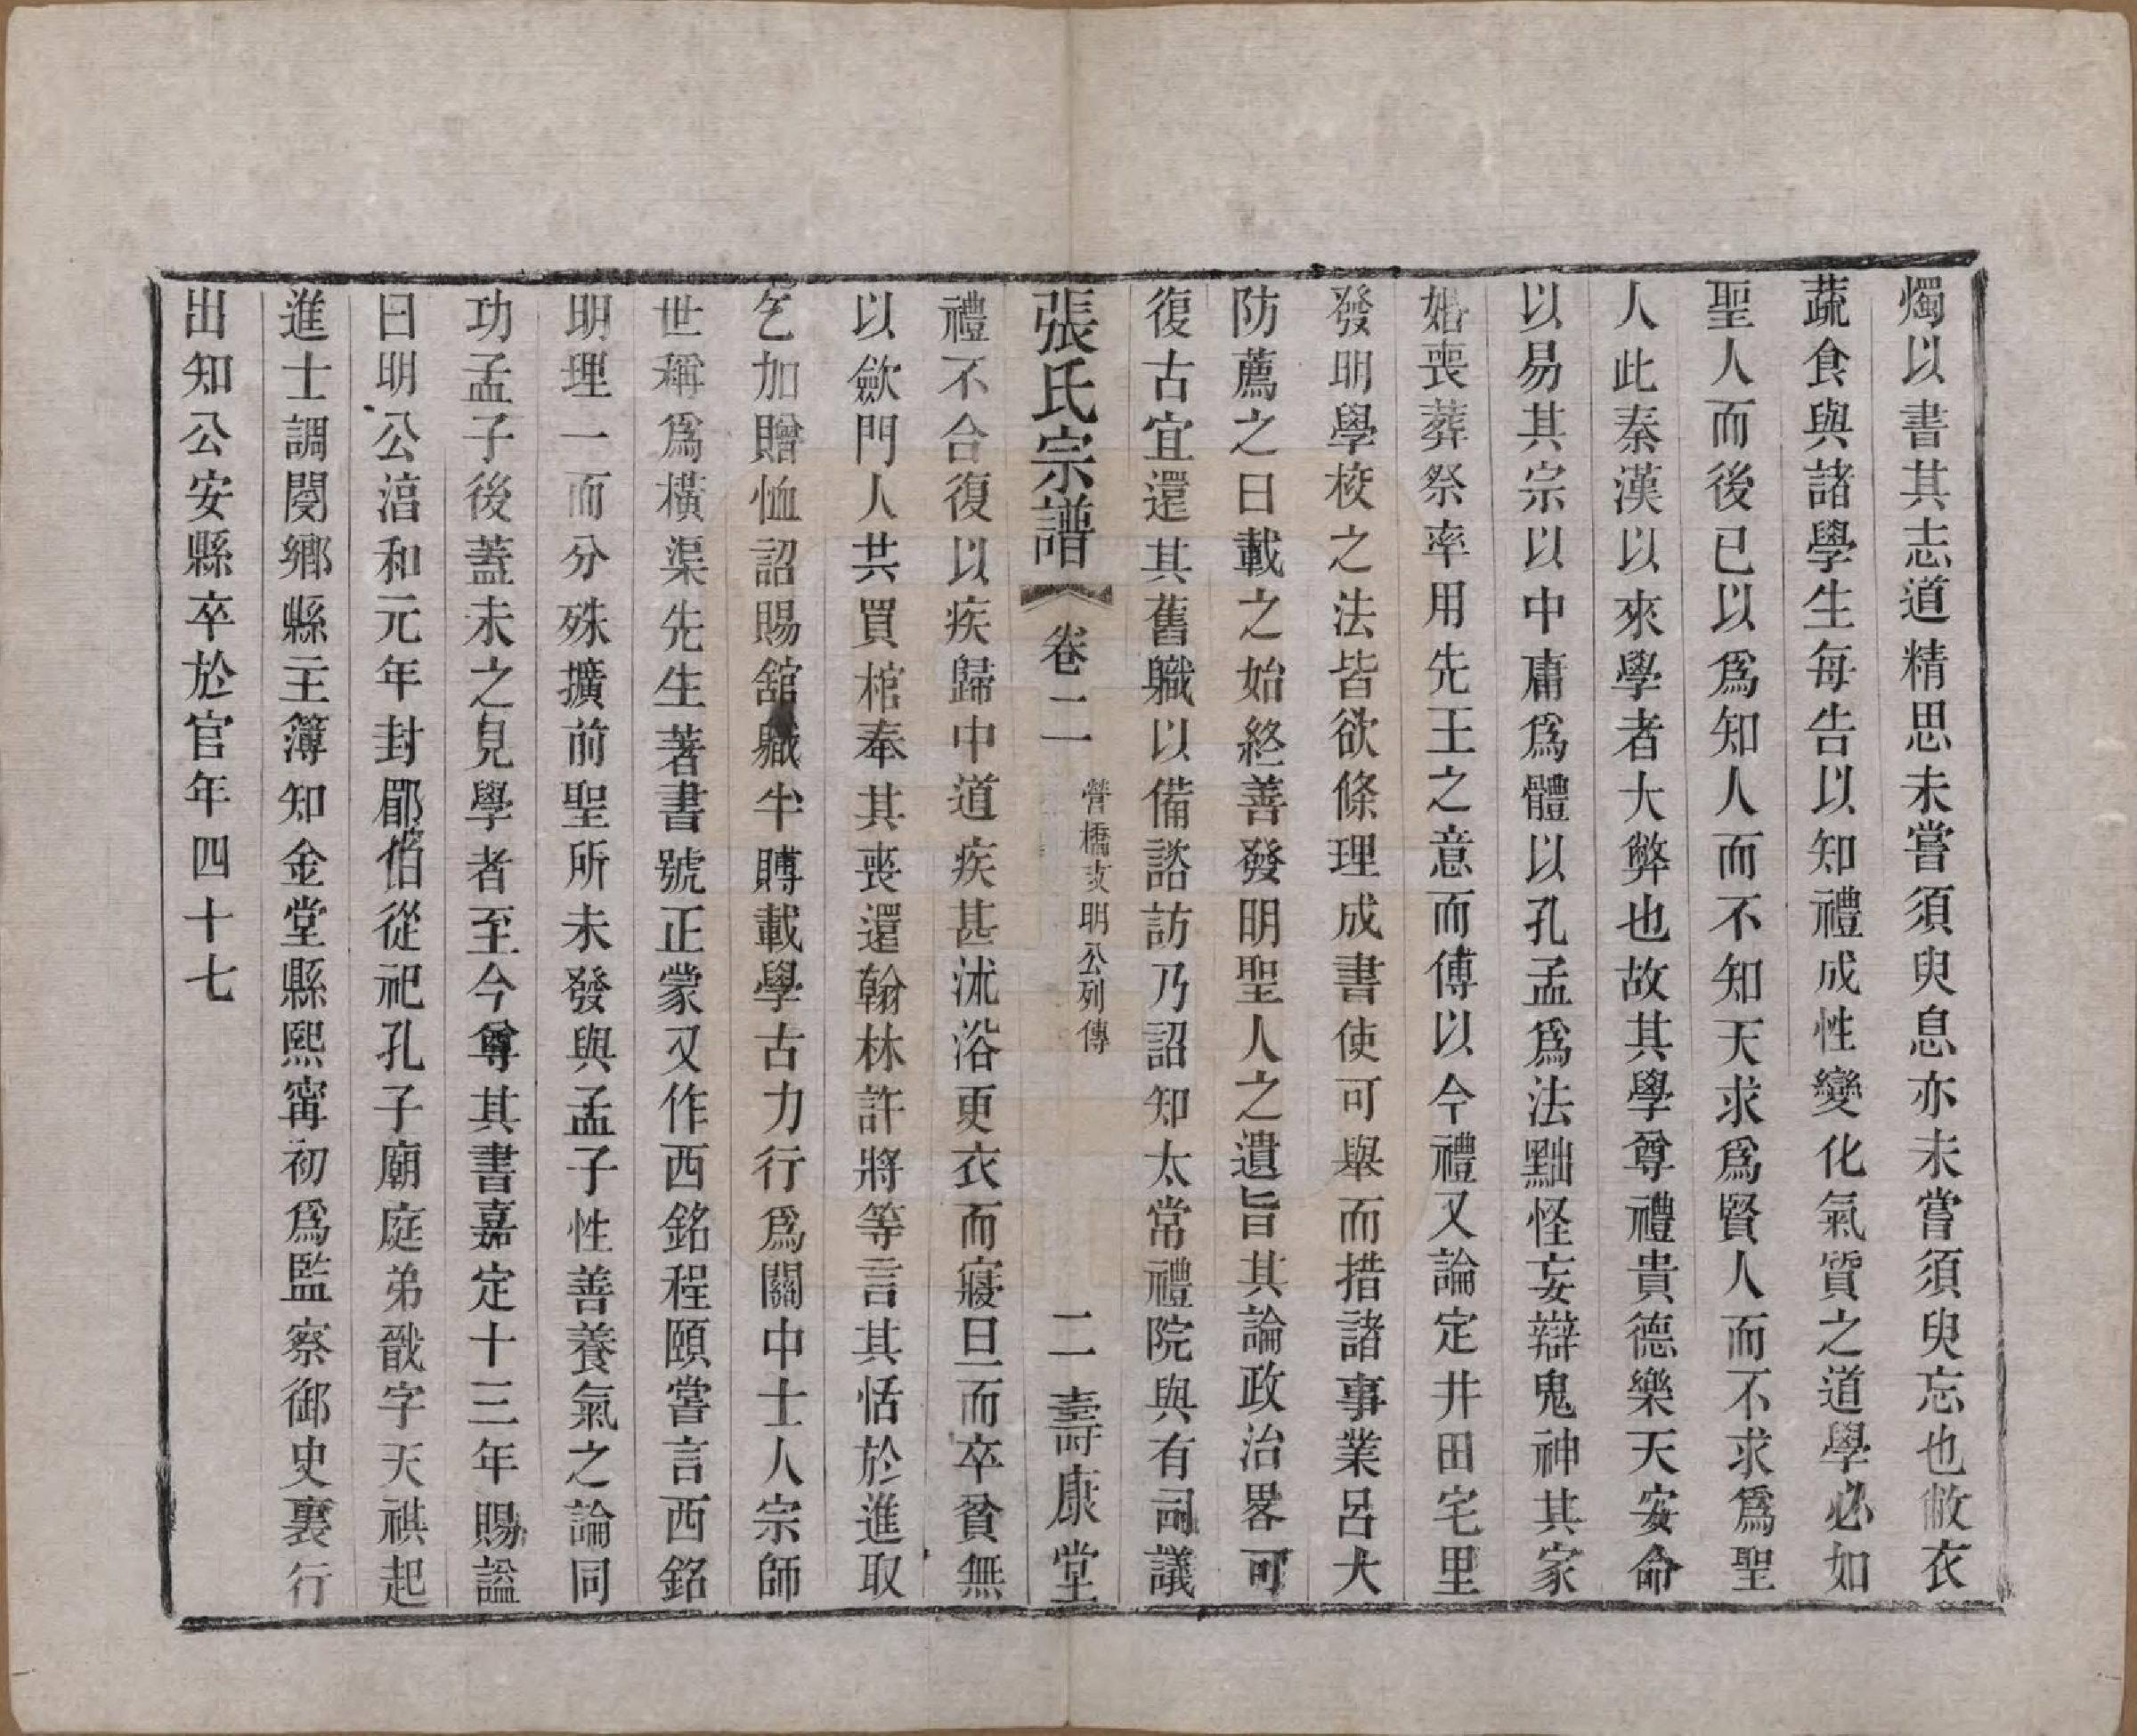 燭以書其志道精思未嘗須臾息亦未嘗須臾忘也敝衣
蔬食與諸學生每告以知禮成性變化氣質之道學必如
聖人而後已以爲知人而不知天求爲賢人而不求爲聖
人此秦漢以來學者大弊也故其學尊禮貴德樂天安命
以易其宗以中庸爲體以孔孟爲法黜怪妄辯鬼神其家
婚喪葬祭率用先王之意而傅以今禮又論定井田宅里
發明學校之法皆欲條理成書使可舉而措諸事業呂大
防薦之曰載之始終善發明聖人之遺旨其論政治畧可
復古宜還其舊職以備諮訪乃詔知太常禮院與有司議
張氏宗譜 卷二 營橋支明公列傳 二 壽康堂
禮不合復以疾歸中道疾甚沐浴更衣而寢旦而卒貧無
以斂門人共買棺奉其喪還翰林許將等言其恬於進取
乞加贈恤詔賜舘職半賻載學古力行爲關中士人宗師
世稱爲橫渠先生著書號正蒙又作西銘程頤嘗言西銘
明理一而分殊擴前聖所未發與孟子性善養氣之論同
功孟子後蓋未之見學者至今尊其書嘉定十三年賜謚
曰明公湻和元年封郿伯從祀孔子廟庭弟戩字天祺起
進士調閿鄉縣主簿知金堂縣熙寗初爲監察御史裏行
出知公安縣卒於官年四十七